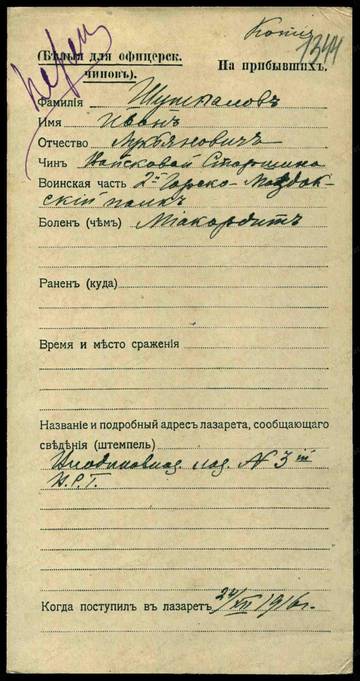 Копія
1344
(Бѣлыя для офицерск.
чиновъ).
На прибывшихъ.
Фамилія Шутпаловъ
Имя Иванъ
Отчество Лукьяновичъ
Чинъ Войсковой Старшина
Воинская часть 2й Горско-Моздок-
скій полкъ
Боленъ (чѣмъ) Міакордитъ
Раненъ (куда)
Время и мѣсто сраженія
Названіе и подробный адресъ лазарета, сообщающаго
свѣдѣнія (штемпель)
гос. № 3ій
Когда поступилъ въ лазаретъ 24/XII 1916 г.